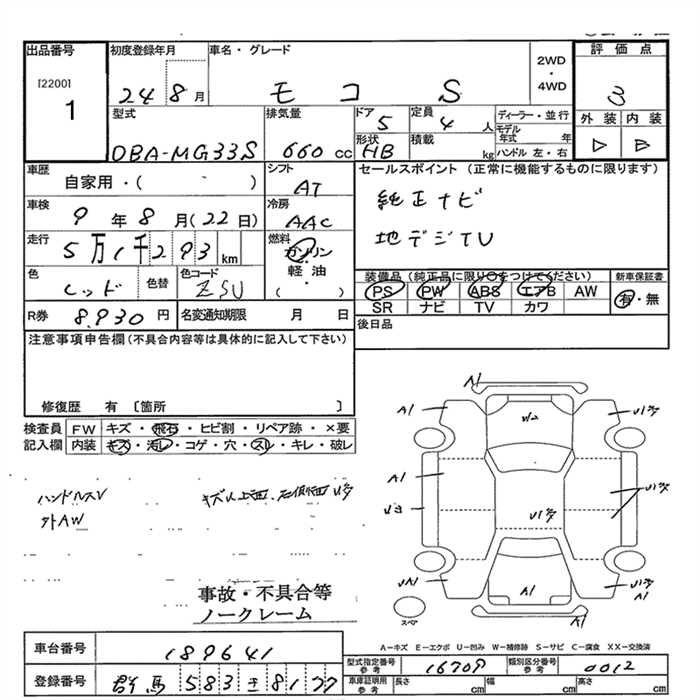 出品番号 初度登録年月 車名・グレード 評価点
[2200] 1 24 8月 モコ S 2WD・4WD 3
型式 排気量 ドア 5 定員 4人 ディーラー・並行 外装 内装
DBA-MG33S 660cc 形状 HB 積載 kg モデル年式 年 ハンドル 左・右
車歴 シフト セールスポイント(正常に機能するものに限ります)
自家用・( ) AT 純正ナビ
車検 9年8月(22日) 冷房 AAC 地デジTV
走行 5万1千293km 燃料 ガソリン・軽油 ( ・ )
色 レッド 色替 色コード ZSU 装備品(純正品に限り○をつけてください) 新車保証書
PS PW ABS エアB AW 有・無
SR ナビ TV カワ
R券 8,930円 名変通知期限 月 日 後日品
注意事項申告欄(不具合内容等は具体的に記入して下さい)
修復歴 有 〔箇所 〕
検査員 FW キズ・飛石・ヒビ割・リペア跡・×要
記入欄 内装 キズ・汚レ・コゲ・穴・スレ・キレ・破レ
ハンドルスV
外AW
A1
A1
W2
A1
A1
スペア
事故・不具合等
ノークレーム
A−キズ E−エクボ U−凹み W−補修跡 S−サビ C−腐食 XX−交換済
車台番号 189641
型式指定番号 参考 16709 類別区分番号 参考 0012
登録番号 群馬 583 81 77
車庫証明用 参考 長さ cm 幅 cm 高さ cm